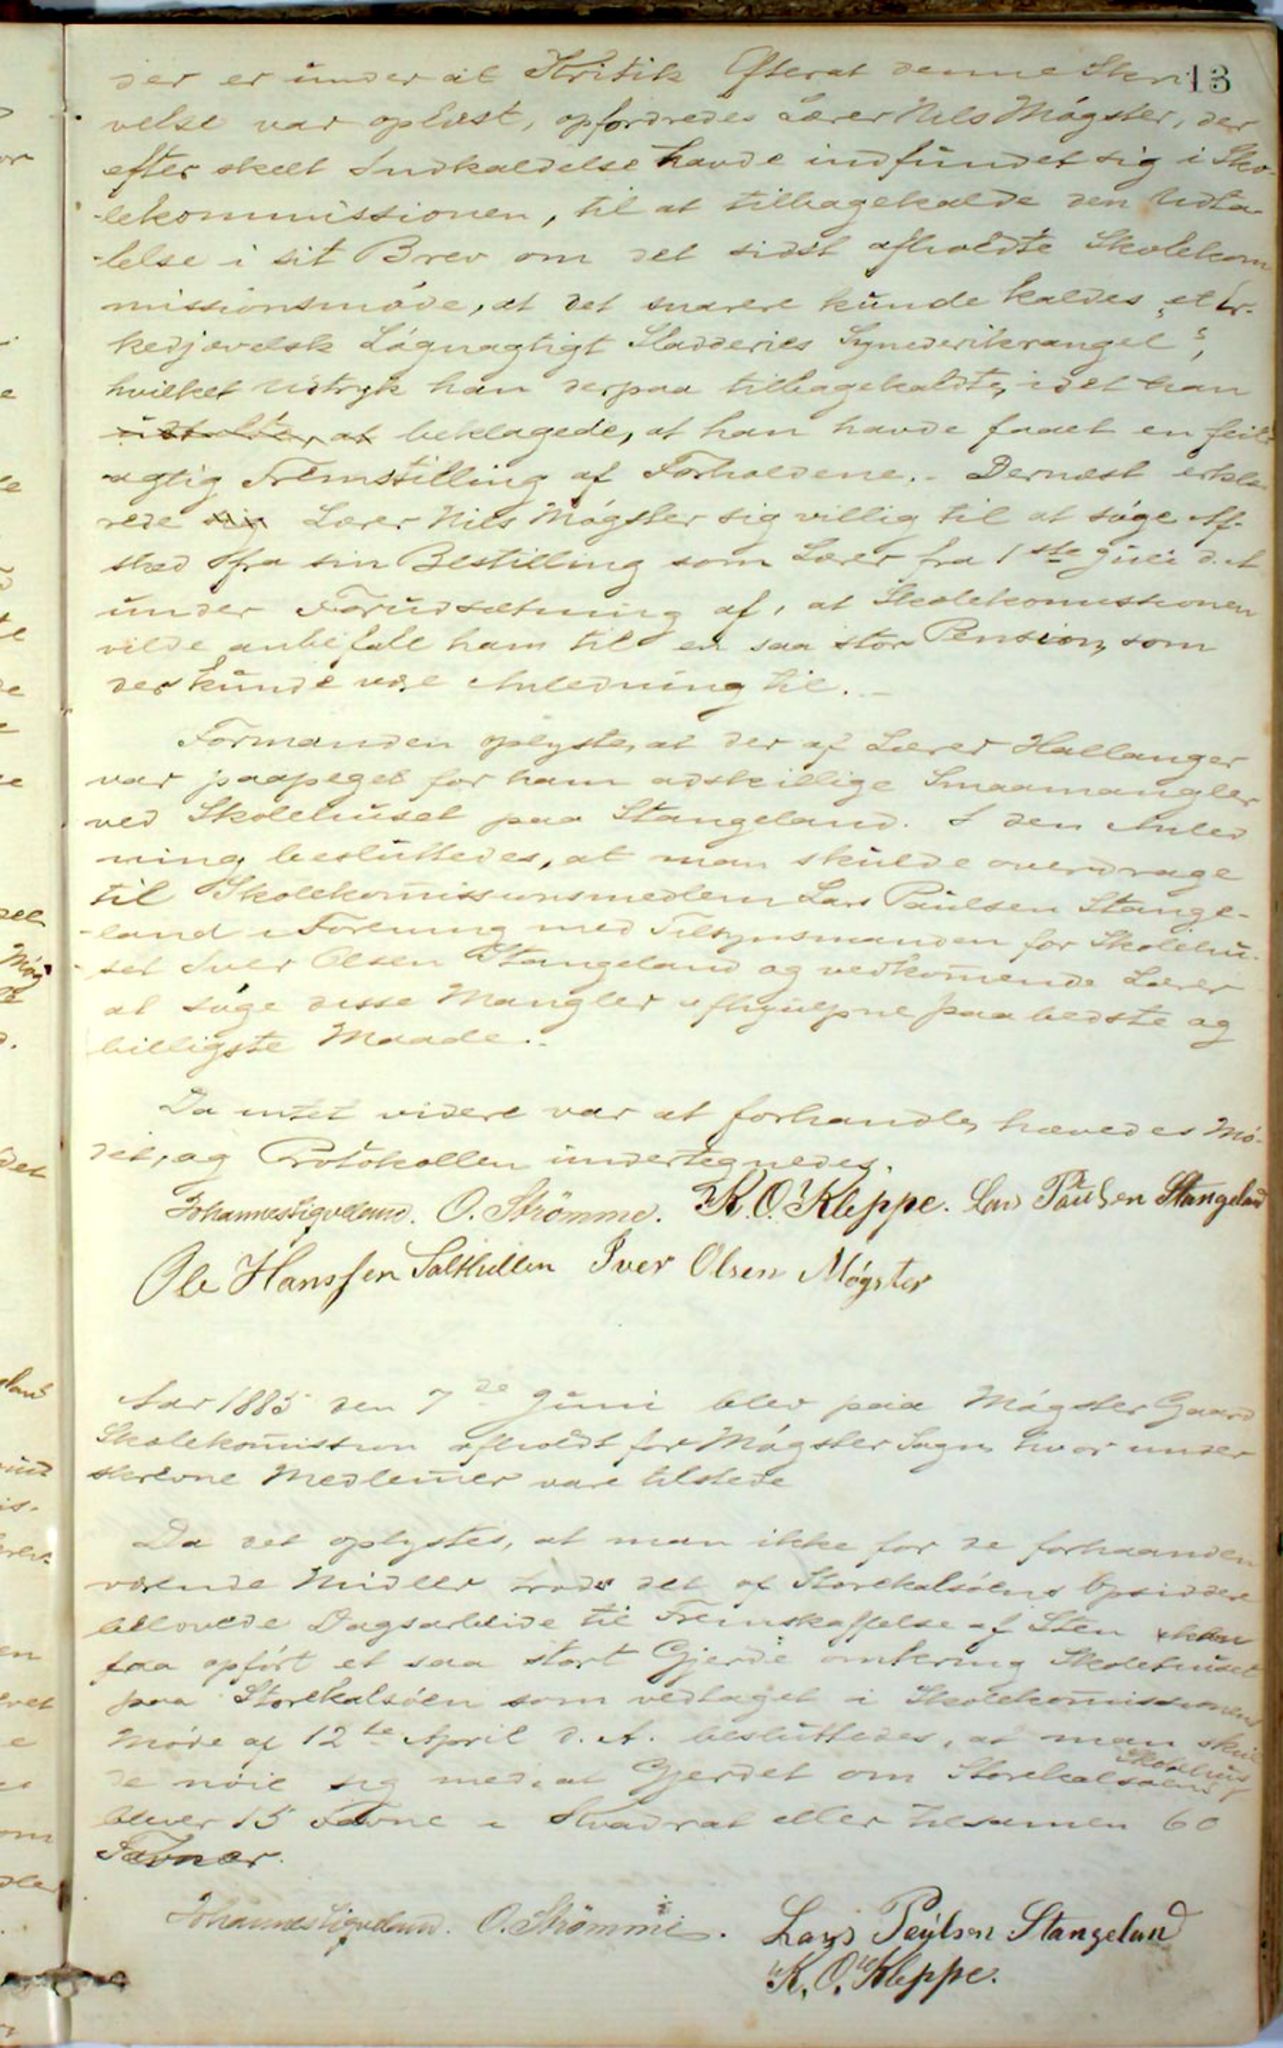 13
der er under al Kritik Efterat denne Skri-
velse var oplæst, opfordredes Lærer Nils Møgster, der
efter skeet Indkaldelse havde indfundet sig i Sko-
lekommissionen, til at tilbagekalde den Udta-
lelse i sit Brev om det sidst afholdte Skolekom
missionsmøde, at det snarere kunde kaldes "et Er-
kedjævelsk Løgnagtigt Sladderies Synederikrangel",
hvilket Udtryk han derpaa tilbagekaldte, idet han
beklagede, at han havde faaet en feil-
agtig Fremstilling af Forholdene. - Dernæst erklæ
rede sig Lærer Nils Møgster sig villig til at søge Af-
sked fra sin Bestilling som Lærer fra 1ste Juli d. A
under Forudsætning af, at Skolekomissionen
vilde anbefale ham til en saa stor Pension, som
der kunde være Anledning til. -
Formanden oplyste, at der af Lærer Hallanger
var paapeget for ham adskillige Smaamangler
ved Skolehuset paa Stangeland. I den Anled
ning besluttedes, at man skulde overdrage
til Skolekomissionsmedlem Lars Paulsen Stange-
land i Forening med Tilsynsmanden for Skolehu-
set Iver Olsen Stangeland og vedkomende Lærer
at søge disse Mangler afhjulpne paa bedste og
billigste Maade.
Da intet videre var at forhandle, hævedes Mø-
det, og Protokollen undertegnedes.
Johannes Sigvaldsen. O. Strömme. K. O. Kleppe. Lars Paulsen Stangeland
Ole Hanssen Iver Olsen Møgster
Aar 1885 den 7de Juni blev paa Møgster Gaard
Skolekomission afholdt for Møgster Sogn hvor under
skrevne Medlemer vare tilstede
Da det oplystes, at man ikke for de forhaanden
værende Midler trods det af Storekalsøens Opsiddere
belovede Dagsarbeide til Fremskaffelse af Sten kan
faa opført et saa stort Gjerde omkring Skolehuset
paa Storekalsøen som vedtaget i Skolekomissionens
Møde af 12te April d. A. besluttedes, at man skul
de nøie sig med, at Gjerdet om Storekalsøens Skolehus
bliver 15 Favne i Kvadrat eller tilsamen 60
Favner.
Johannes Sigvaldsen. O. Strömme. Lars Paulsen Stangeland
K. O. Kleppe.